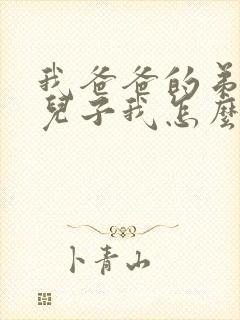 我爸爸的弟
兒子我怎麼
卜青山